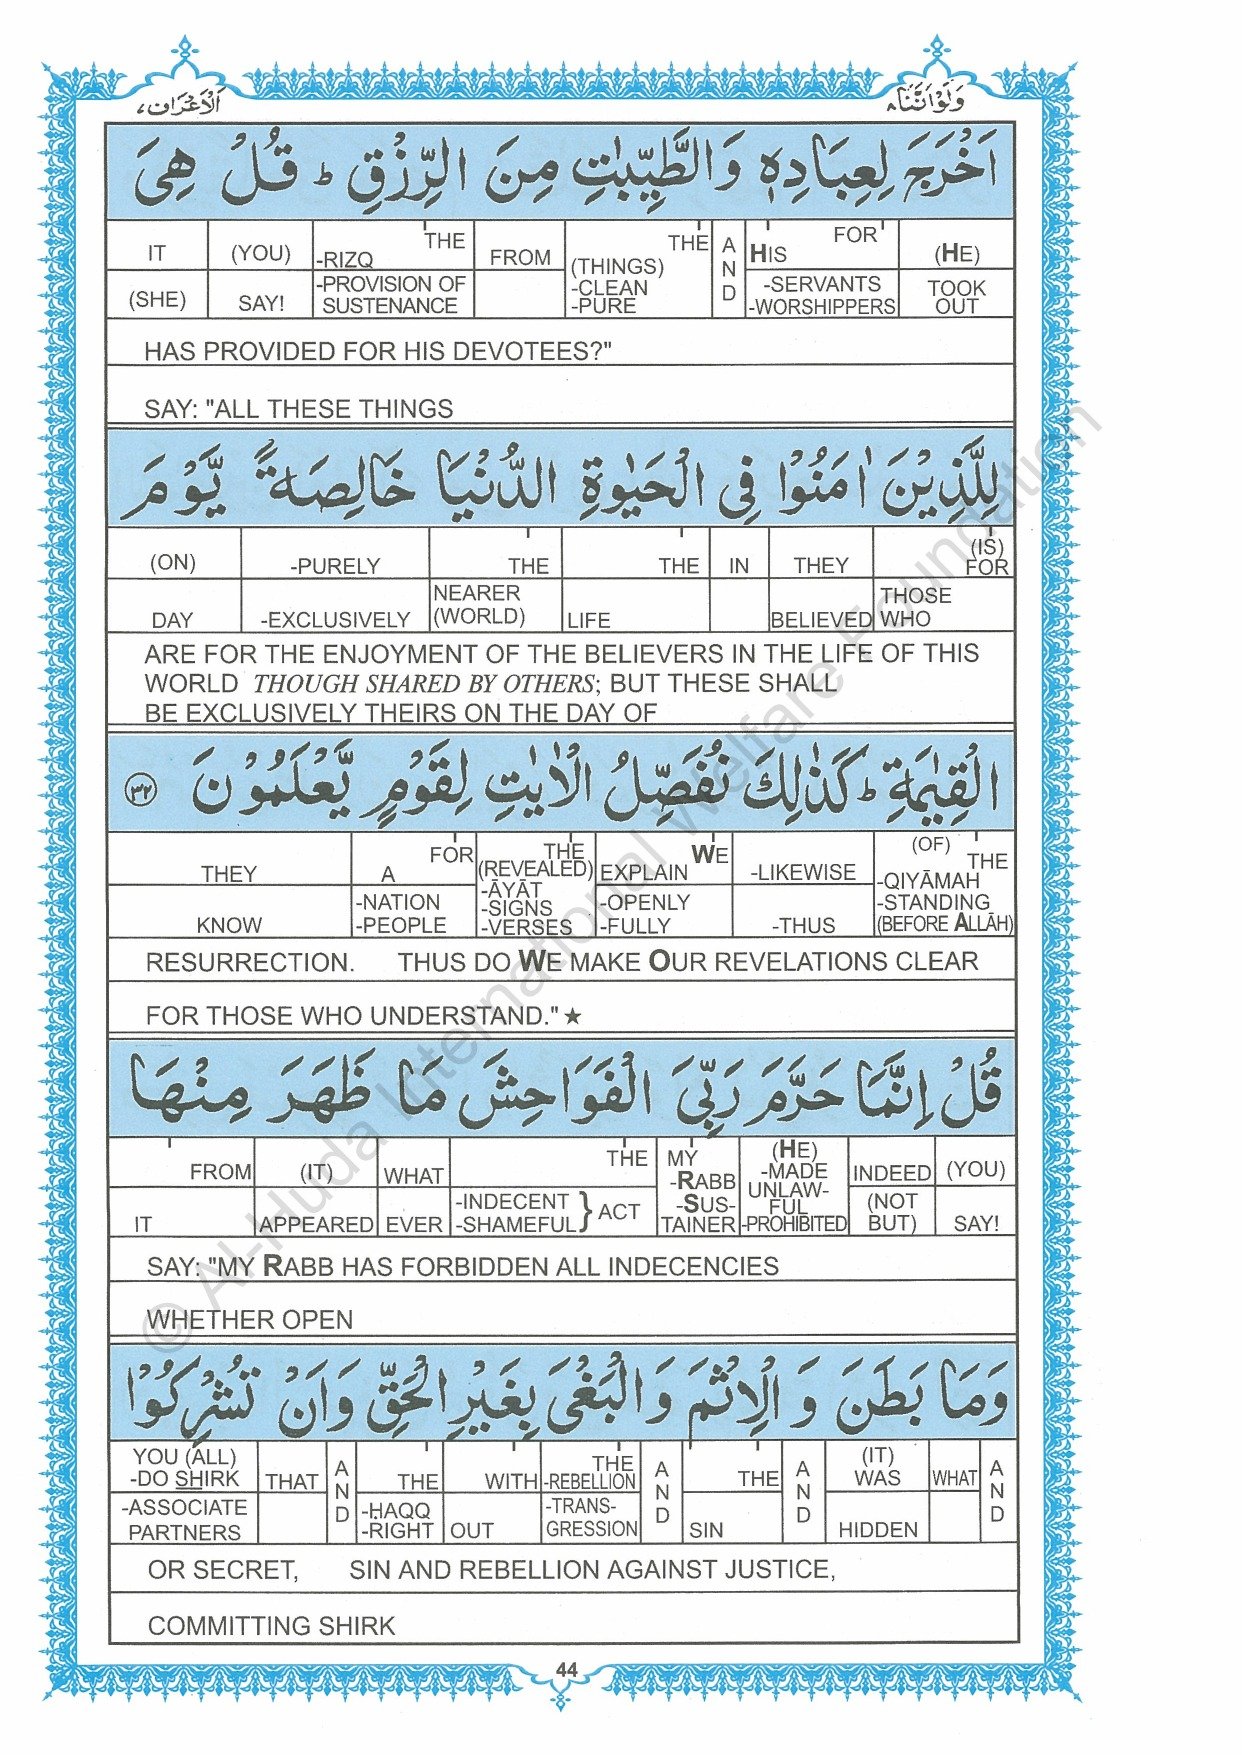 وَلَوْاَنَّنَا ٨
اَلْاَعْرَاف ٧
اَخْرَجَ لِعِبَادِهٖ وَالطَّيِّبٰتِ مِنَ الرِّزْقِ ؕ قُلْ هِىَ
IT (YOU) -RIZQ THE FROM (THINGS) -CLEAN -PURE THE AND HIS FOR (HE)
(SHE) SAY! -PROVISION OF SUSTENANCE -SERVANTS -WORSHIPPERS TOOK OUT
HAS PROVIDED FOR HIS DEVOTEES?"
SAY: "ALL THESE THINGS
لِلَّذِيْنَ اٰمَنُوْا فِى الْحَيٰوةِ الدُّنْيَا خَالِصَةً يَّوْمَ
(ON) -PURELY THE THE IN THEY (IS) FOR
DAY -EXCLUSIVELY NEARER (WORLD) LIFE BELIEVED THOSE WHO
ARE FOR THE ENJOYMENT OF THE BELIEVERS IN THE LIFE OF THIS
WORLD THOUGH SHARED BY OTHERS; BUT THESE SHALL
BE EXCLUSIVELY THEIRS ON THE DAY OF
الْقِيٰمَةِ ؕ كَذٰلِكَ نُفَصِّلُ الْاٰيٰتِ لِقَوْمٍ يَّعْلَمُوْنَ ٣٢
THEY A FOR THE (REVEALED) -ĀYĀT -SIGNS -VERSES EXPLAIN WE -LIKEWISE (OF) THE -QIYĀMAH -STANDING (BEFORE ALLĀH)
KNOW -NATION -PEOPLE -OPENLY -FULLY -THUS
RESURRECTION. THUS DO WE MAKE OUR REVELATIONS CLEAR
FOR THOSE WHO UNDERSTAND." ★
قُلْ اِنَّمَا حَرَّمَ رَبِّىَ الْفَوَاحِشَ مَا ظَهَرَ مِنْهَا
FROM (IT) WHAT THE MY -RABB -SUS-TAINER (HE) -MADE UNLAW-FUL -PROHIBITED INDEED (YOU)
IT APPEARED EVER -INDECENT -SHAMEFUL } ACT (NOT BUT) SAY!
SAY: "MY RABB HAS FORBIDDEN ALL INDECENCIES
WHETHER OPEN
وَمَا بَطَنَ وَ الْاِثْمَ وَالْبَغْىَ بِغَيْرِ الْحَقِّ وَاَنْ تُشْرِكُوْا
YOU (ALL) -DO SHIRK THAT AND THE WITH THE -REBELLION AND THE AND (IT) WAS WHAT AND
-ASSOCIATE PARTNERS -ḤAQQ -RIGHT OUT -TRANS-GRESSION SIN HIDDEN
OR SECRET, SIN AND REBELLION AGAINST JUSTICE,
COMMITTING SHIRK
44
© Al-Huda International Welfare Foundation